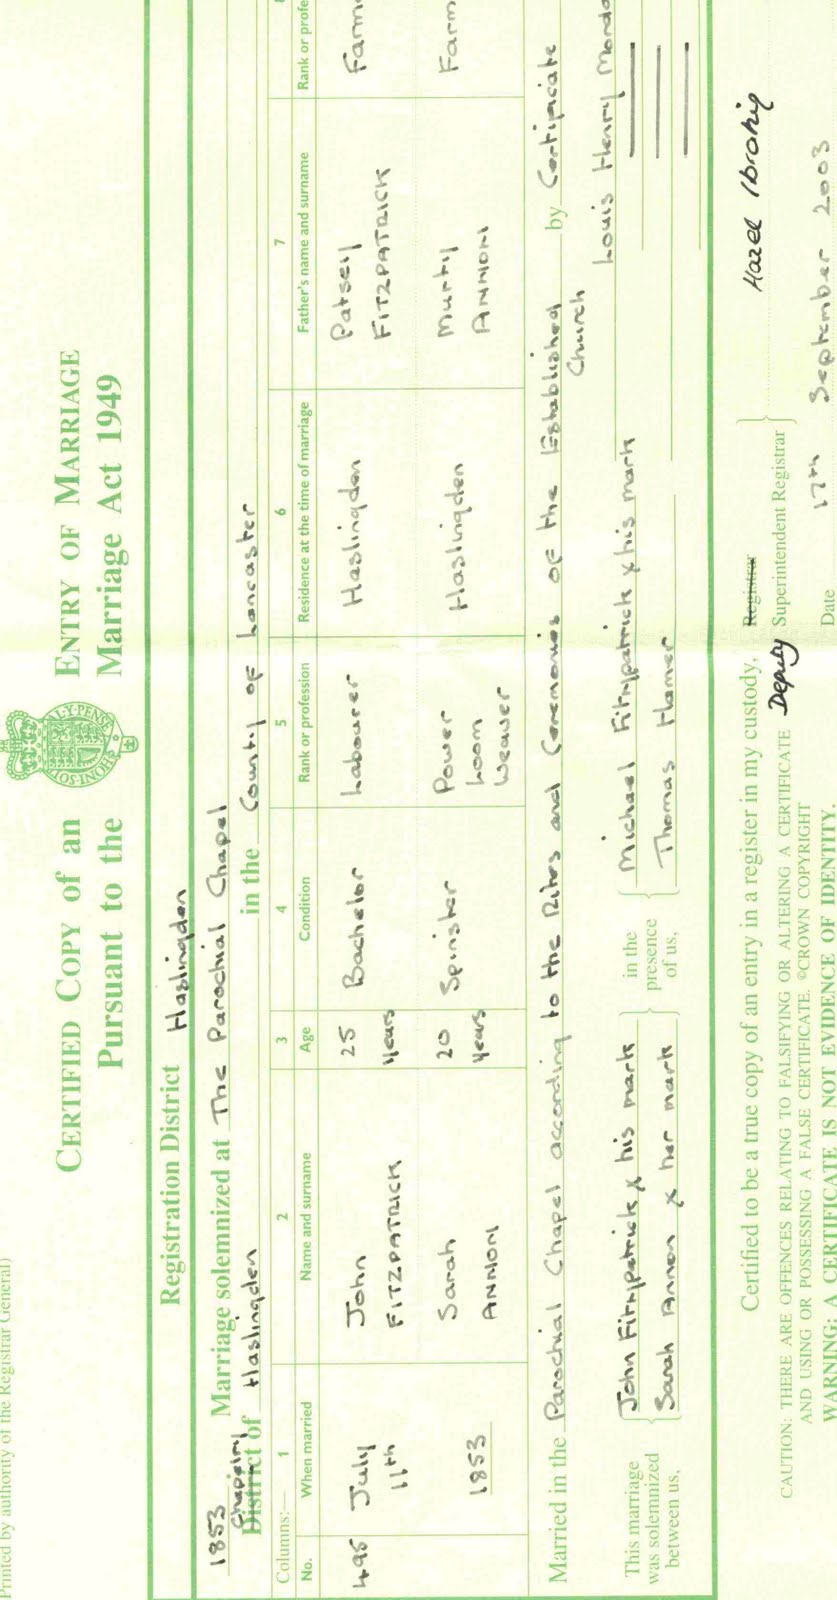 Printed by authority of the Registrar General)
CERTIFIED COPY of an ENTRY OF MARRIAGE
Pursuant to the Marriage Act 1949
HONI·SOIT
Y·PENSE
Registration District Haslingden
1853 Marriage solemnized at The Parochial Chapel
Chapelry
District of Haslingden in the County of Lancaster
Columns:— 1 2 3 4 5 6 7 8
No. When married Name and surname Age Condition Rank or profession Residence at the time of marriage Father's name and surname Rank or profe
495 July John 25 Bachelor Labourer Haslingden Patsey Farm
11th FITZPATRICK years FITZPATRICK
1853 Sarah 20 Spinster Power Haslingden Murty Farm
ANNON years Loom ANNON
Weaver
Married in the Parochial Chapel according to the Rites and Ceremonies of the Established by Certificate
Church
This marriage John Fitzpatrick x his mark in the Michael Fitzpatrick x his mark Louis Henry
was solemnized Sarah Annon x her mark presence Thomas Hamer
between us, of us,
Certified to be a true copy of an entry in a register in my custody, Registrar
Deputy Superintendent Registrar Hazel
CAUTION: THERE ARE OFFENCES RELATING TO FALSIFYING OR ALTERING A CERTIFICATE
AND USING OR POSSESSING A FALSE CERTIFICATE. ©CROWN COPYRIGHT
WARNING: A CERTIFICATE IS NOT EVIDENCE OF IDENTITY.
Date 17th September 2003